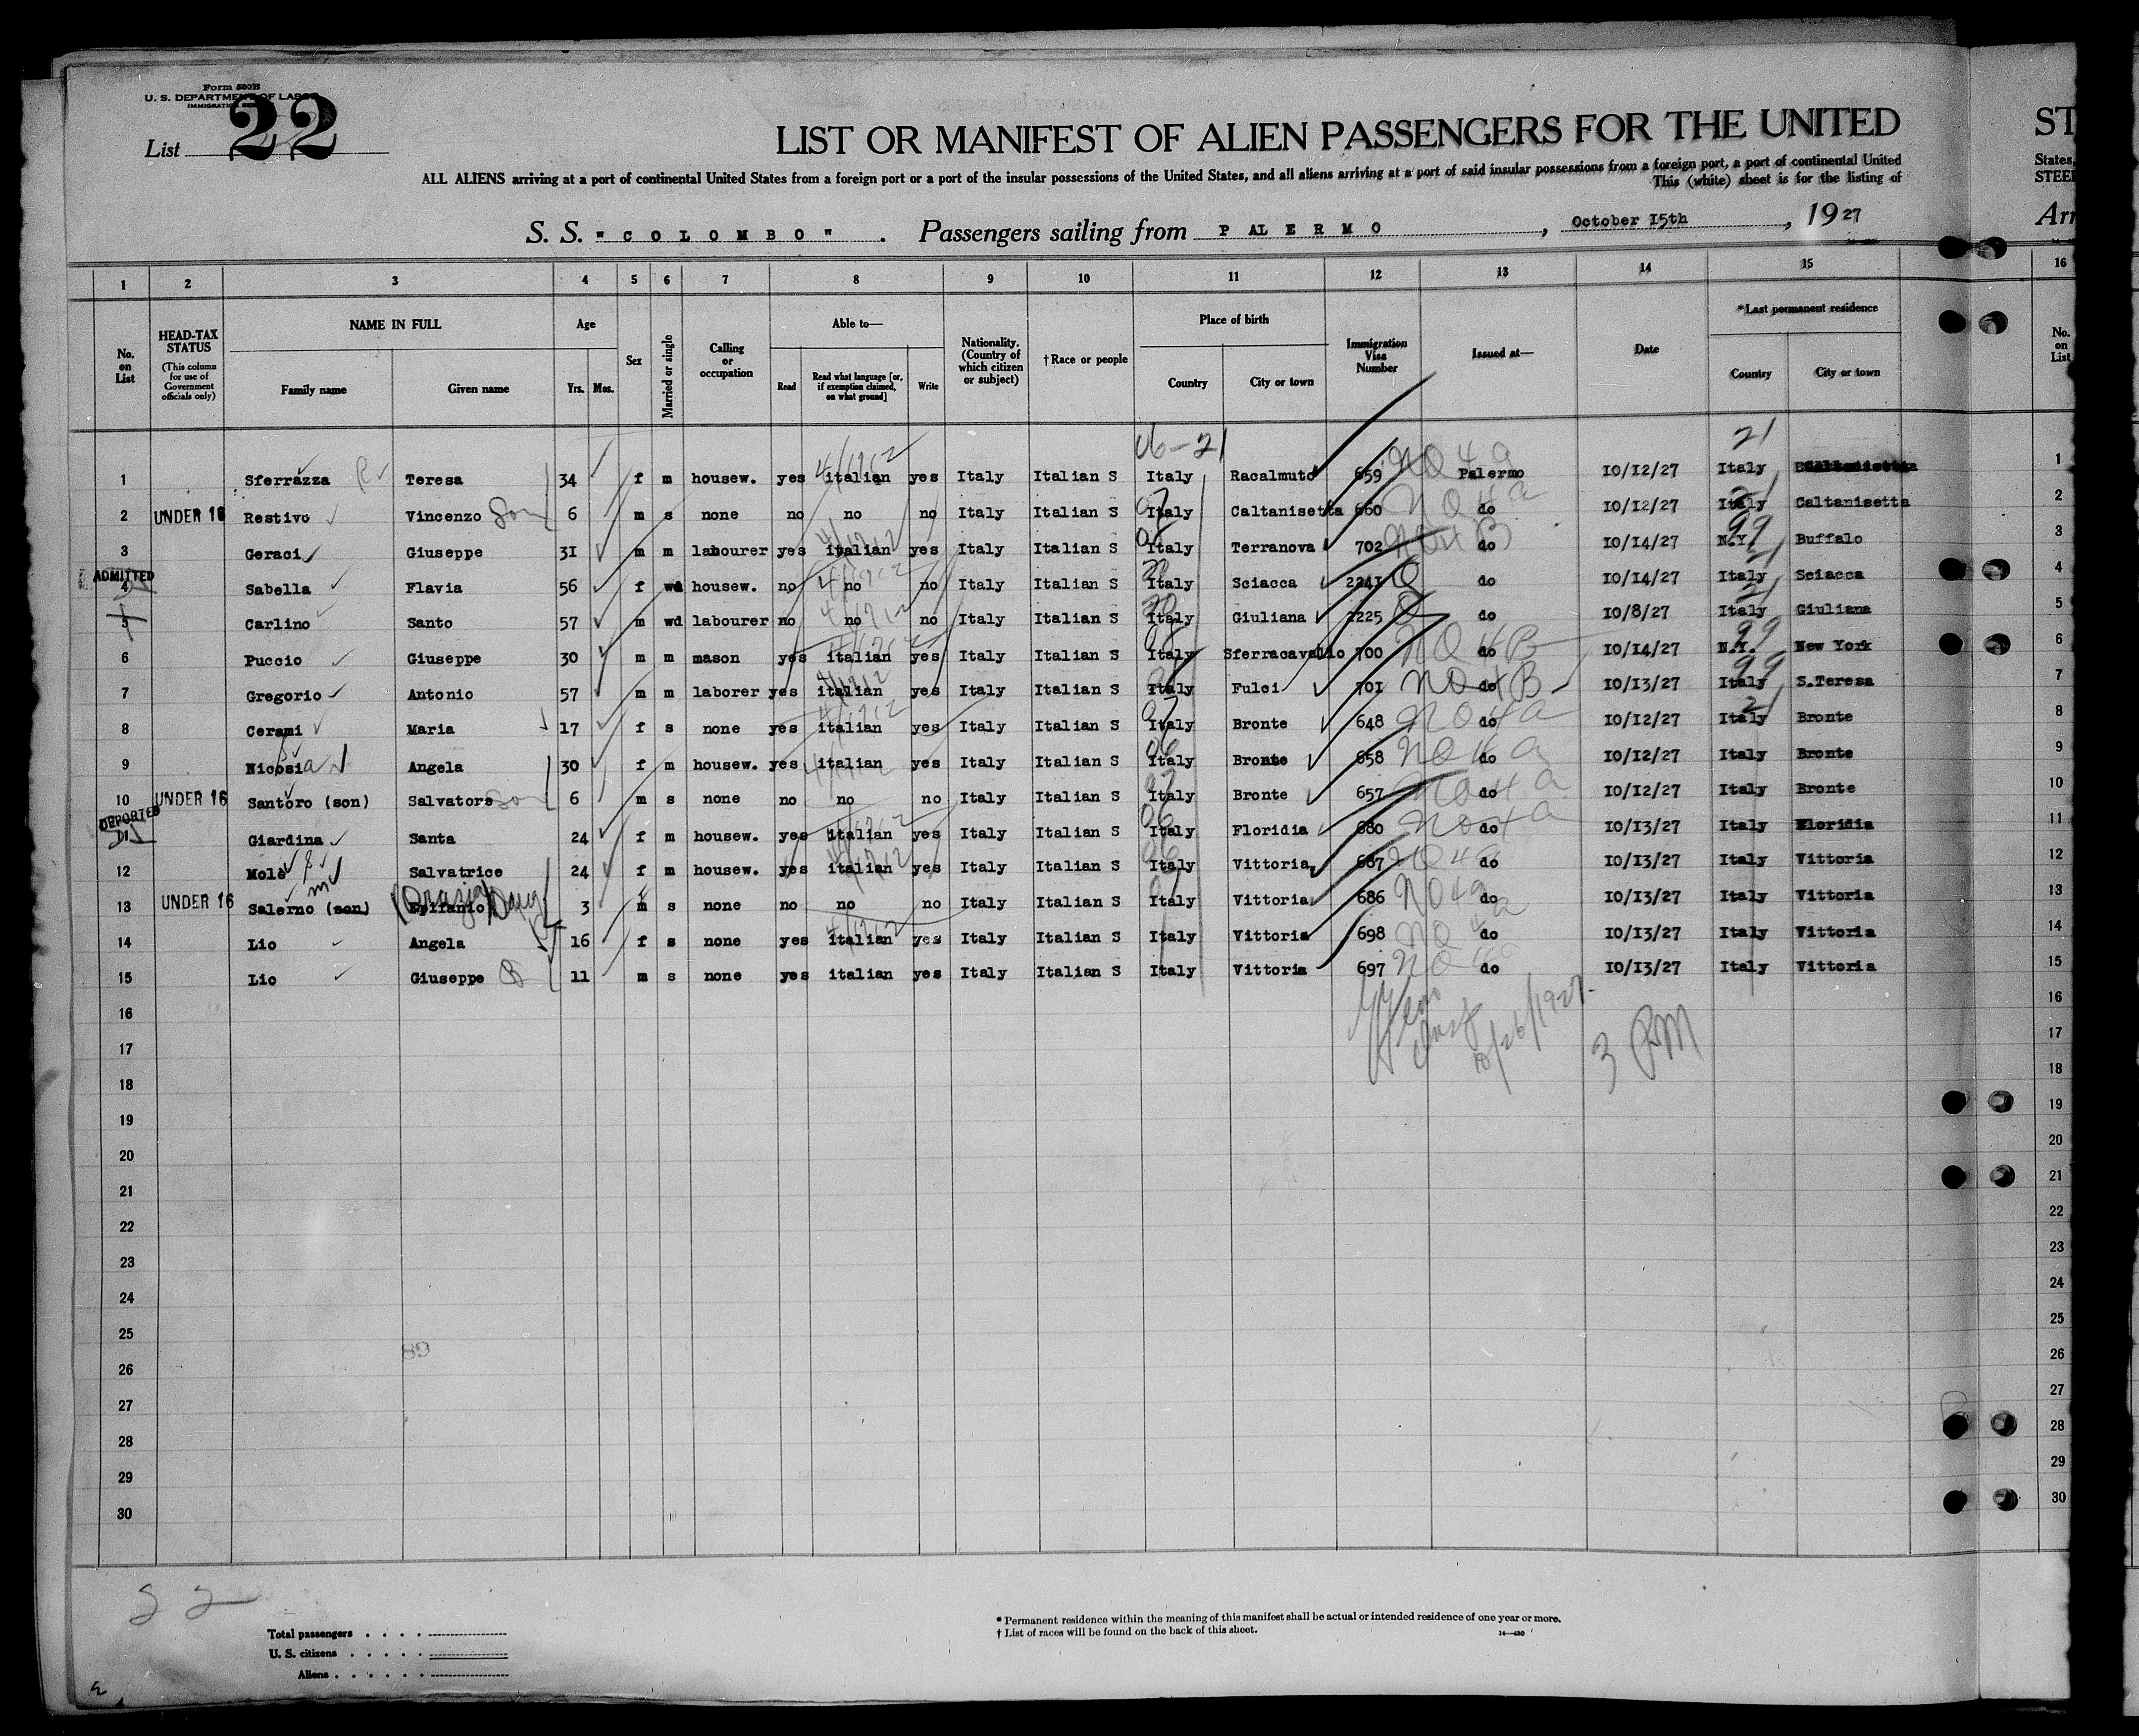 Form 500B
U. S. DEPARTMENT OF LABOR
IMMIGRATION
List 22
LIST OR MANIFEST OF ALIEN PASSENGERS FOR THE UNITED ST
ALL ALIENS arriving at a port of continental United States from a foreign port or a port of the insular possessions of the United States, and all aliens arriving at a port of said insular possessions from a foreign port, a port of continental United States,
This (white) sheet is for the listing of STEE
S. S. "COLOMBO" . Passengers sailing from PALERMO , October 15th , 1927 Arr
1 2 3 4 5 6 7 8 9 10 11 12 13 14 15 16
No. on List
HEAD-TAX STATUS (This column for use of Government officials only)
NAME IN FULL
Family name Given name
Age
Yrs. Mos.
Sex
Married or single
Calling or occupation
Able to—
Read Read what language [or, if exemption claimed, on what ground] Write
Nationality. (Country of which citizen or subject)
†Race or people
Place of birth
Country City or town
Immigration Visa Number
Issued at—
Date
*Last permanent residence
Country City or town
No. on List
06-21 21
1 Sferrazza Teresa 34 f m housew. yes italian yes Italy Italian S Italy Racalmuto 659 Palermo 10/12/27 Italy 1
2 UNDER 16 Restivo Vincenzo Son 6 m s none no no no Italy Italian S Italy Caltanisetta 660 do 10/12/27 Italy Caltanisetta 2
3 Geraci Giuseppe 31 m m labourer yes italian yes Italy Italian S Italy Terranova 702 do 10/14/27 N.Y. Buffalo 3
ADMITTED
4 Sabella Flavia 56 f wd housew. no no no Italy Italian S Italy Sciacca 2241 do 10/14/27 Italy Sciacca 4
5 Carlino Santo 57 m wd labourer no no no Italy Italian S Italy Giuliana 2225 do 10/8/27 Italy Giuliana 5
6 Puccio Giuseppe 30 m m mason yes italian yes Italy Italian S Italy Sferracavallo 700 do 10/14/27 N.Y. New York 6
7 Gregorio Antonio 57 m m laborer yes italian yes Italy Italian S Italy Fulci 701 do 10/13/27 Italy S.Teresa 7
8 Cerami Maria 17 f s none yes italian yes Italy Italian S Italy Bronte 648 do 10/12/27 Italy Bronte 8
9 Nicosia Angela 30 f m housew. yes italian yes Italy Italian S Italy Bronte 658 do 10/12/27 Italy Bronte 9
10 UNDER 16 Santoro (son) Salvatore son 6 m s none no no no Italy Italian S Italy Bronte 657 do 10/12/27 Italy Bronte 10
DEPORTED
Giardina Santa 24 f m housew. yes italian yes Italy Italian S Italy Floridia 680 do 10/13/27 Italy Floridia 11
12 Molè Salvatrice 24 f m housew. yes italian yes Italy Italian S Italy Vittoria 687 do 10/13/27 Italy Vittoria 12
13 UNDER 16 Salerno (son) Epifanio 3 m s none no no no Italy Italian S Italy Vittoria 686 do 10/13/27 Italy Vittoria 13
14 Lio Angela 16 f s none yes italian yes Italy Italian S Italy Vittoria 698 do 10/13/27 Italy Vittoria 14
15 Lio Giuseppe 11 m s none yes italian yes Italy Italian S Italy Vittoria 697 do 10/13/27 Italy Vittoria 15
16 16
17 10/26/1927 3 PM 17
18 18
19 19
20 20
21 21
22 22
23 23
24 24
25 25
26 26
27 27
28 28
29 29
30 30
22
Total passengers
U. S. citizens
Aliens
* Permanent residence within the meaning of this manifest shall be actual or intended residence of one year or more.
† List of races will be found on the back of this sheet.